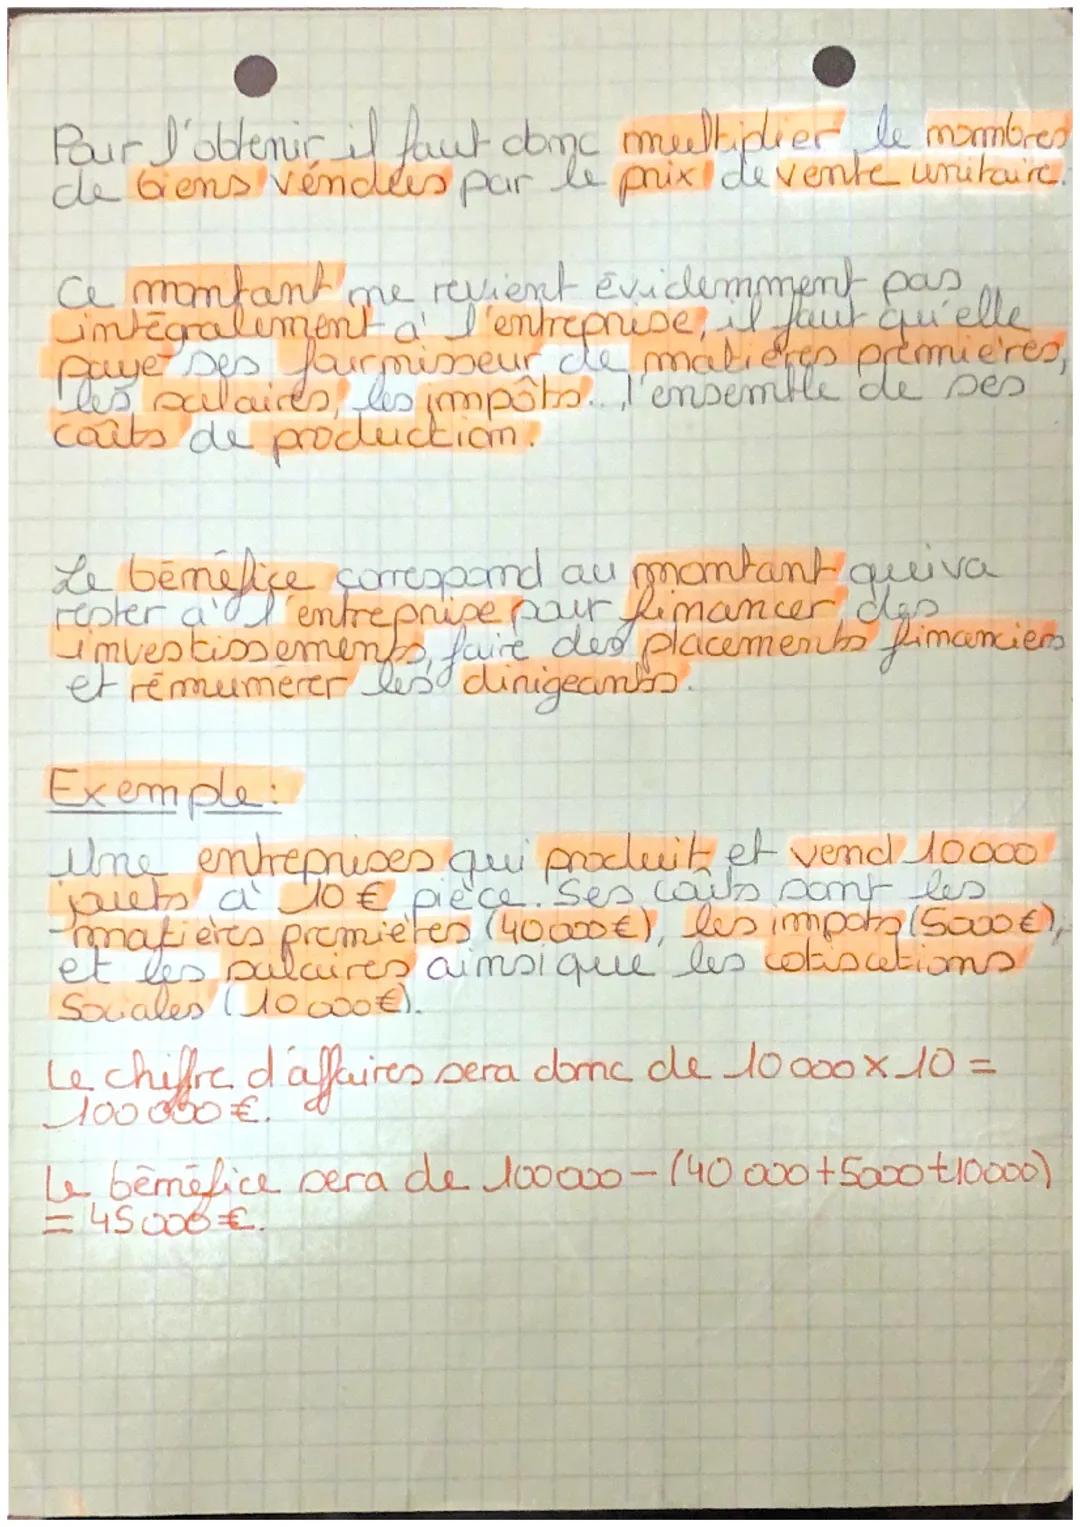 Pour l'obtenir il faut donc multiplier le nombres
de biens vendues par le prix de vente unitaire.
Ce montant ne revient évidemment pas
intégralement à l'entreprise, il faut qu'elle
paye ses fournisseur de matières premières,
les salaires, les impôts... l'ensemble de ses
coûts de production.
Le bénéfice correspond au montant qui va
rester à l'entreprise pour financer des
investissements, faire des placements financiers
et rémunérer les dirigeants.
Exemple:
Une entreprises qui produit et vend 10000
jouets à 10 € pièce. Ses coûts sont les
matières premières (40 000 €), les impots (5000 €),
et les salaires ainsi que les cotisations
Sociales (10 000 €).
Le chiffre d'affaires sera donc de 10 000 x 10 =
100 000 €.
Le bénéfice sera de 100 000 - (40 000 + 5000 + 10000)
= 45 000 €.